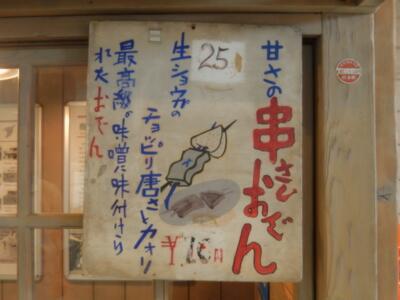 甘さの
串さしおでん
25
生ショウガの
チョッピリ唐さとカオリ
最高級の味噌に味付けら
れたおでん